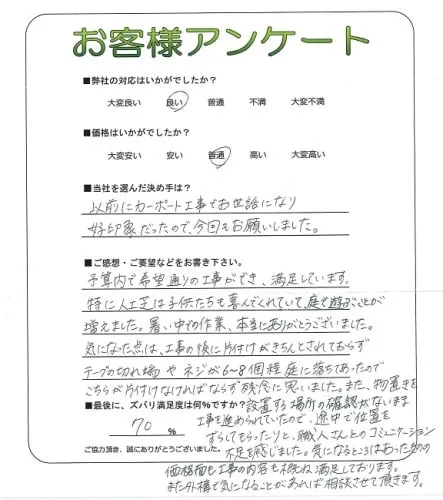 お客様アンケート
■弊社の対応はいかがでしたか?
大変良い 良い 普通 不満 大変不満
■価格はいかがでしたか?
大変安い 安い 普通 高い 大変高い
■当社を選んだ決め手は?
以前にカーポート工事でお世話になり
好印象だったので、今回もお願いしました。
■ご感想・ご要望などをお書き下さい。
予算内で希望通りの工事ができ、満足しています。
特に人工芝は子供たちも喜んでくれていて、庭で遊ぶことが
増えました。暑い中での作業、本当にありがとうございました。
気になった点は、工事の後に片付けがきちんとされておらず
テープの切れ端やネジが6~8個程庭に落ちてあったので
こちらが片付けなければならず残念に思いました。また、物置きを
設置する場所の確認がないまま
工事を進められていたので、途中で位置を
ずらしてもらったりと、職人さんとのコミュニケーション
不足を感じました。気になるところはあったものの
価格面も工事の内容も概ね満足しております。
また外構で気になることがあれば相談させて頂きます。
■最後に、ズバリ満足度は何%ですか?
70 %
ご協力頂き、誠にありがとうございました。